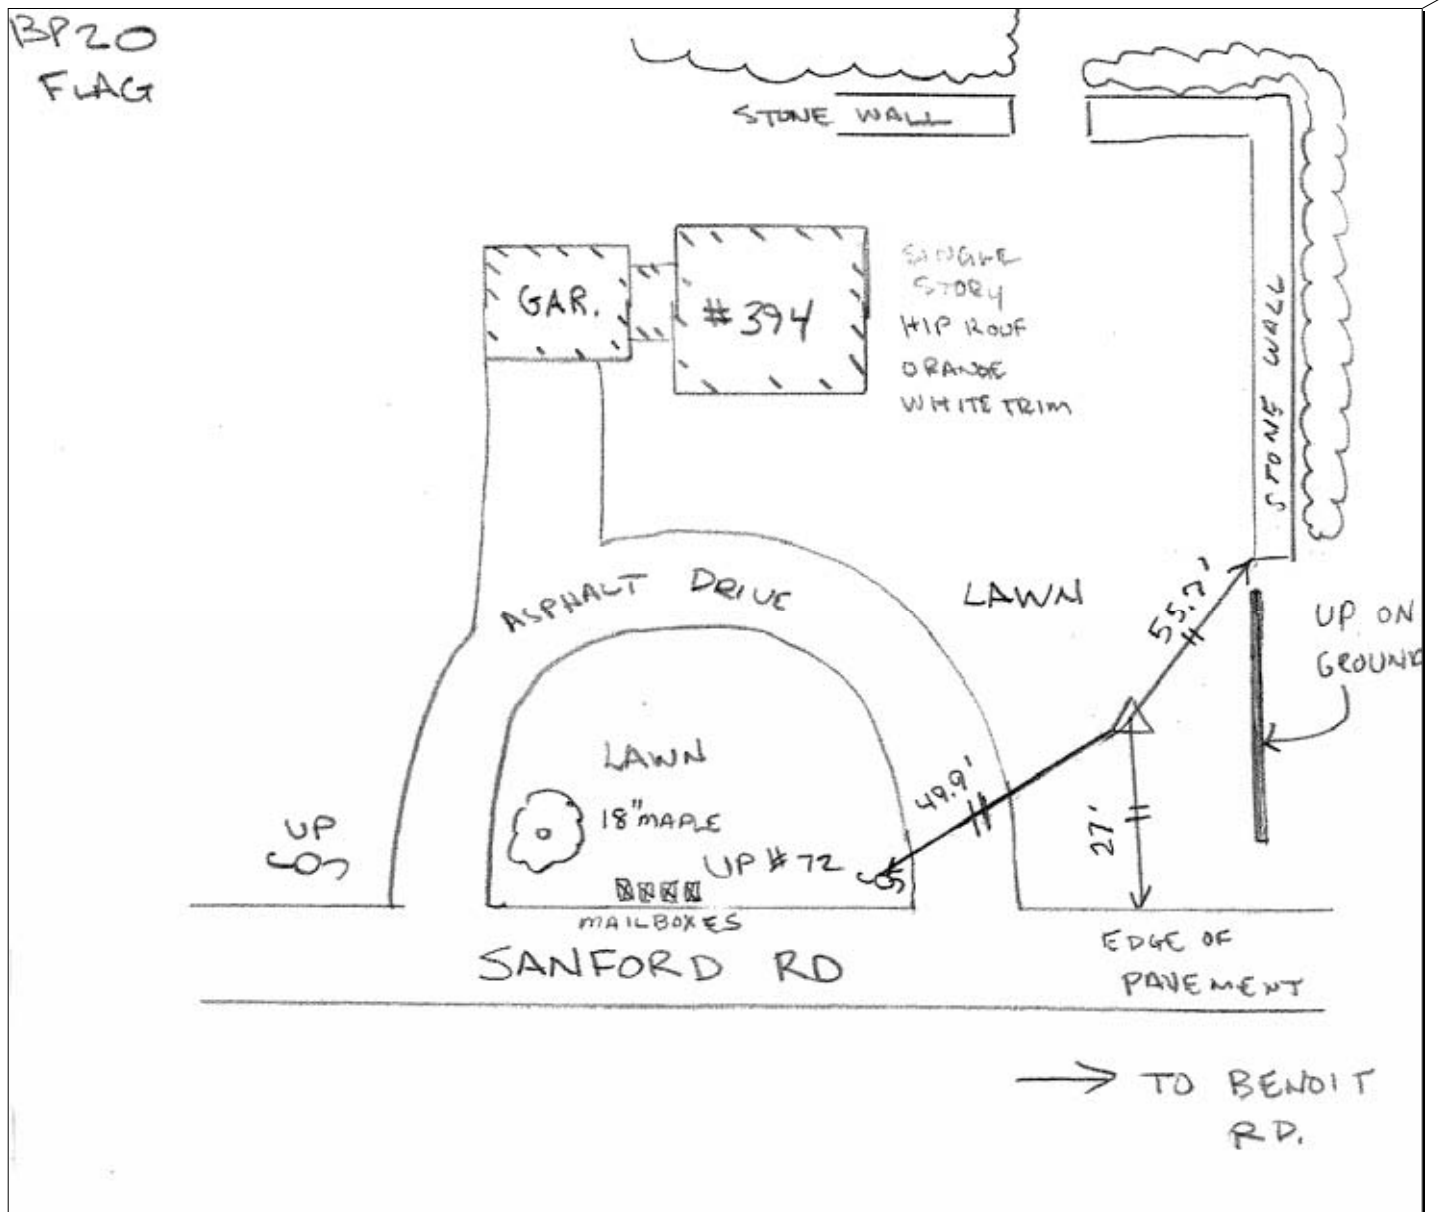 BP20
FLAG
STONE WALL
GAR.
#394
SINGLE
STORY
HIP ROOF
ORANGE
WHITE TRIM
STONE WALL
ASPHALT DRIVE
LAWN
55.7'
UP ON
GROUND
LAWN
18" MAPLE
49.9'
27'
UP
UP #72
MAILBOXES
SANFORD RD
EDGE OF
PAVEMENT
TO BENOIT
RD.